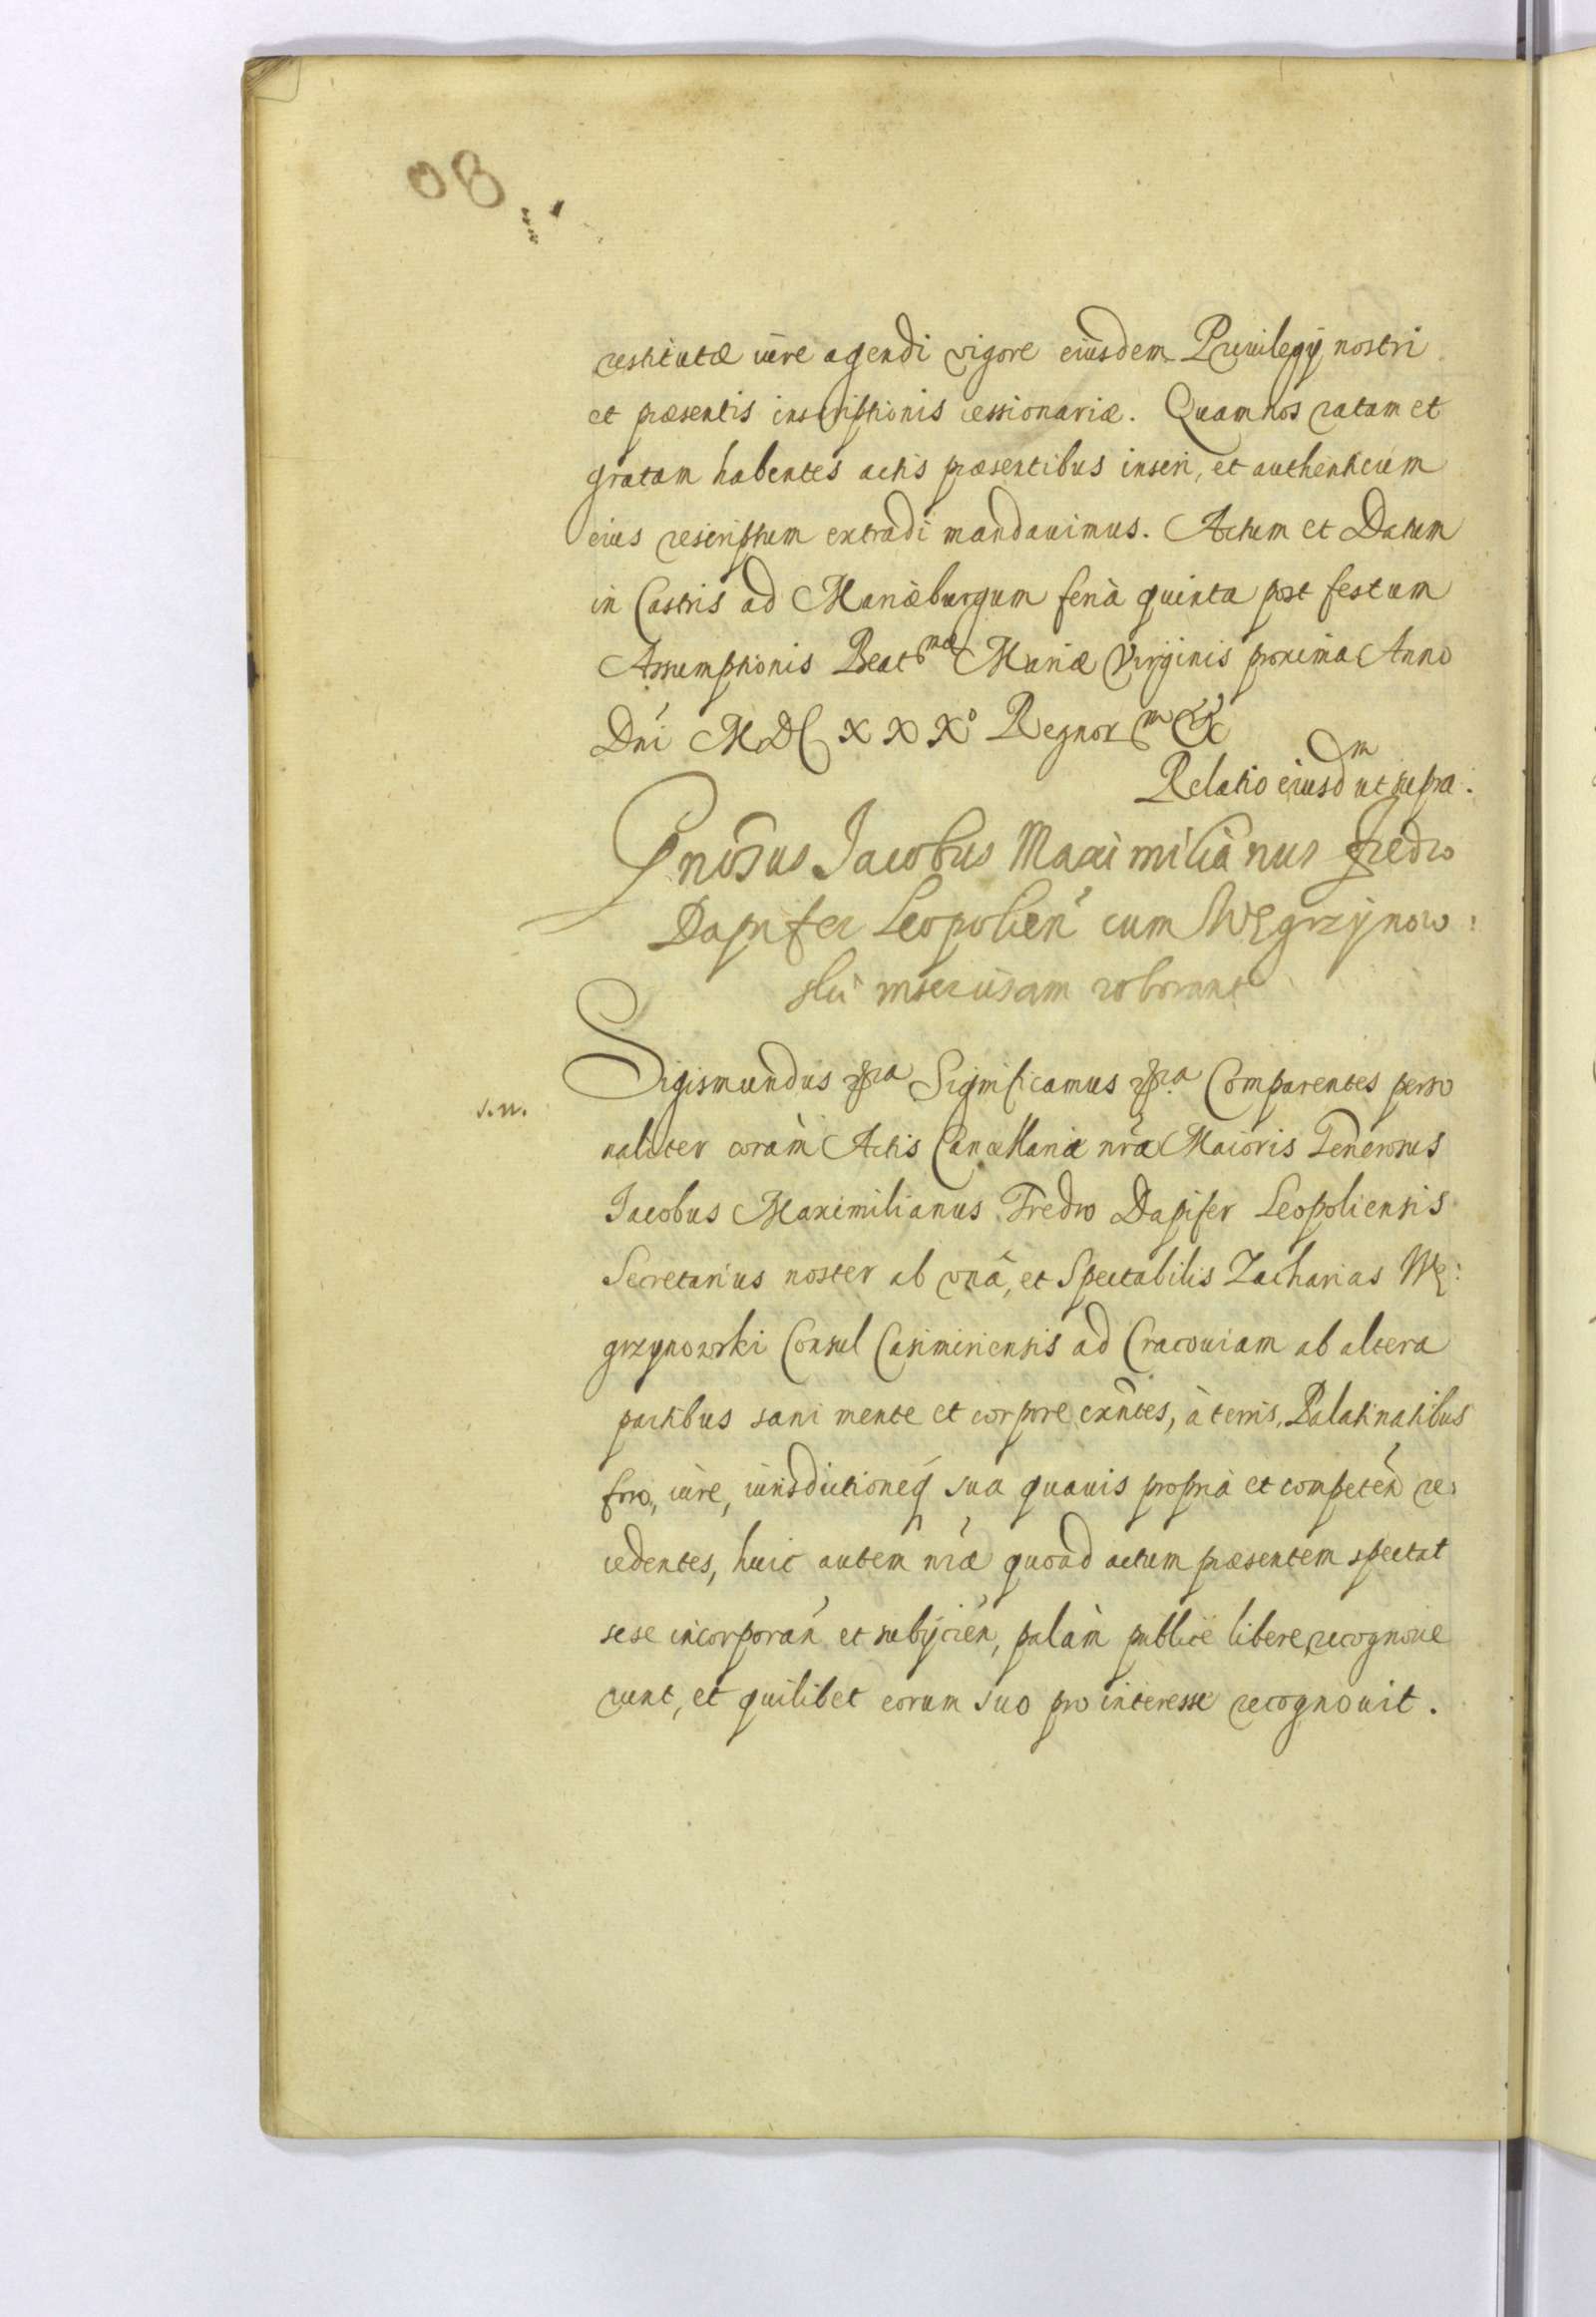 08
restitutæ iure agendi vigore eiusdem Priuilegij nostri
et præsentis inscriptionis cessionariæ. Quam nos ratam et
gratam habentes actis præsentibus inseri, et authenticum
eius rescriptum extradi mandauimus. Actum et Datum
in Castris ad Mariæburgum feria quinta post festum
Assumptionis Beatmæ Mariæ Virginis proxima Anno
Dni MDCXXXº Regnorm &c
Relatio eiusdm ut supra.
Gnosus Jacobus Maximilianus Fredro
Dapifer Leopolien cum Węgrzynow:
skii roborant
Sigismundus &ra Significamus &ra Comparentes perso
s.n.
naliter coram Actis Cancellariæ nræ Maioris Generosus
Jacobus Maximilianus Fredro Dapifer Leopoliensis
Secretarius noster ab vna, et Spectabilis Zacharias Wę:
grzynowski Consul Casimiriensis ad Cracouiam ab altera
partibus sani mente et corpore exntes, à terris, Palatinatibus
foro, iure, iurisdictioneq sua quauis propria et competen re:
cedentes, huic autem nræ quoad actum præsentem spectat
sese incorporan et subijcien, palàm publice libere recognoue
runt, et quilibet eorum suo pro interesse recognouit.